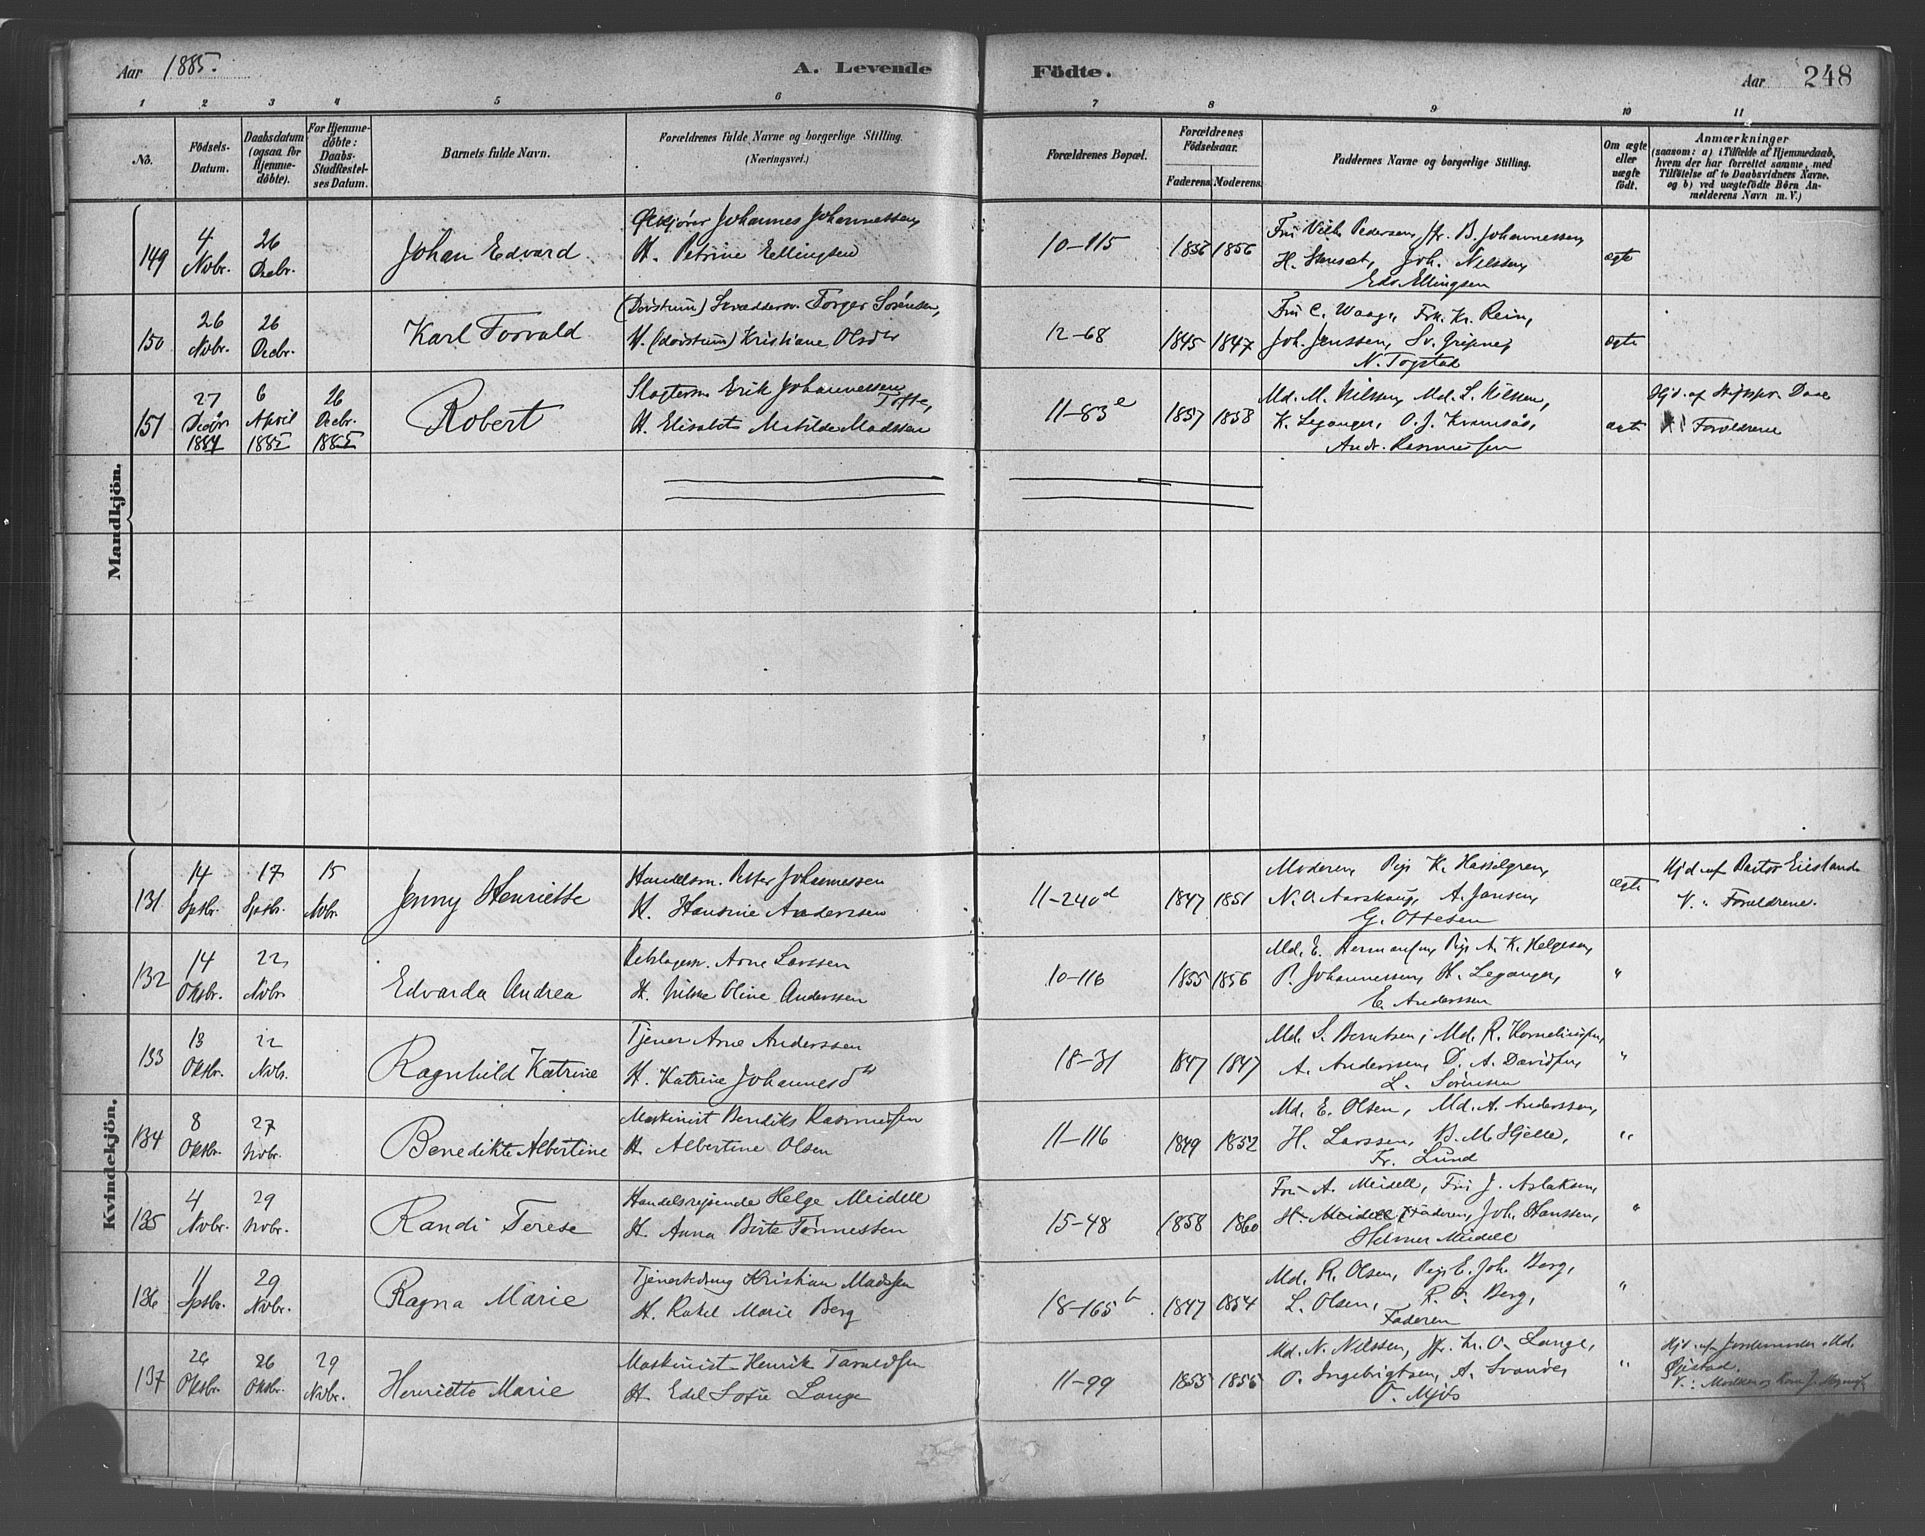 Aar 1885.
A. Levende Födte.
Aar 248
1 2 3 4 5 6 7 8 9 10 11
No.
Födsels-Datum.
Daabsdatum (ogsaa for Hjemme-döbte).
For Hjemme-döbte: Daabs-Stadfæstel-ses Datum.
Barnets fulde Navn.
Forældrenes fulde Navne og borgerlige Stilling.
(Næringsvei.)
Forældrenes Bopæl.
Forældrenes Födselsaar.
Faderens. Moderens.
Faddernes Navne og borgerlige Stilling.
Om ægte eller uægte födt.
Anmærkninger
(saasom: a) i Tilfælde af Hjemmedaab, hvem der har forrettet samme, med Tilföielse af to Daabsvidners Navne, og b) ved uægtefödte Börn An-melderens Navn m. V.)
Mandkjön.
149 4 Novbr. 26 Decbr. Johan Edvard
Johannes Johannessen,
H. Petrine Ellingsen
10-115 1856 1856
Fru Pedersen, Jfr. B. Johannessen,
H. Joh. Nilssen,
Edv. Ellingsen
ægte
150 26 Novbr. 26 Decbr. Karl Torvald
Torger Sörensen,
H. Kristiane Olsdr
12-68 1845 1847
Fru C. Waage, Frk. Kr. Rein,
Joh. Jenssen, Sv. Gripne,
N. Togstad
ægte
151 27 Decbr. 1884 6 April 1885 26 Decbr. 1885 Robert
Slagterm. Erik Johannessen Tofte,
H. Elisabet Matilde Madssen
11-83e 1857 1858
Md. M. Nilssen, Md. S. Nilssen,
K. Leganger, O. J. Kramsås,
Andr. Rasmussen
ægte
Hjd. af Daae
V: Forældrene
Kvindekjön.
131 14 Sptbr. 17 Sptbr. 15 Novbr. Jenny Henriette
Handelsm. Petter Johannessen
H. Hansine Anderssen
11-240d 1847 1851
Moderen, Pige K. Hasselgren,
N. O. Aarskaug, A. Jansen,
G. Ottesen
ægte
Hjd. af Pastor
V.: Forældrene.
132 14 Oktbr. 22 Novbr. Edvarda Andrea
Rebslagerm. Arne Larssen
H. Oline Anderssen
10-116 1855 1856
Md. E. Hermansen, Pige A. K. Helgesen,
P. Johannessen, H. Leganger,
E. Anderssen
"
133 13 Oktbr. 22 Novbr. Ragnhild Katrine
Tjener Arne Anderssen
H. Katrine Johannesdtr
18-31 1847 1847
Md. S. Berntsen, Md. R. Korneliussen,
A. Anderssen, D. A. Davidsen,
L. Sörensen
"
134 8 Oktbr. 27 Novbr. Benedikte Albertine
Maskinist Bendiks Rasmussen
H. Albertine Olsen
11-116 1849 1852
Md. E. Olsen, Md. A. Anderssen,
H. Larssen, B. M. Hjelle,
Fr. Lund
"
135 4 Novbr. 29 Novbr. Randi Terese
Handelsreisende Helge Meidell
H. Anna Birte Tönnessen
15-48 1858 1860
Fru A. Meidell, Fru J. Aslaksen,
H. Meidell (Faderen), Joh. Hanssen,
Helmer Meidell
"
136 11 Sptbr. 29 Novbr. Ragna Marie
Kristian Madssen
H. Rakel Marie Berg
18-165b 1847 1854
Md. R. Olsen, Pige E. Joh. Berg,
L. Olsen, R. O. Berg,
Faderen
"
137 26 Oktbr. 26 Oktbr. 29 Novbr. Henriette Marie
Maskinist Henrik Taraldsen
H. Edel Sofie Lange
11-99 1855 1855
Md. N. Nilssen, Jfr. O. Lange,
O. Ingebrigtsen, A. Svanöe,
O. Mjös
"
Hjd. af Jordemoder Md.
V.: